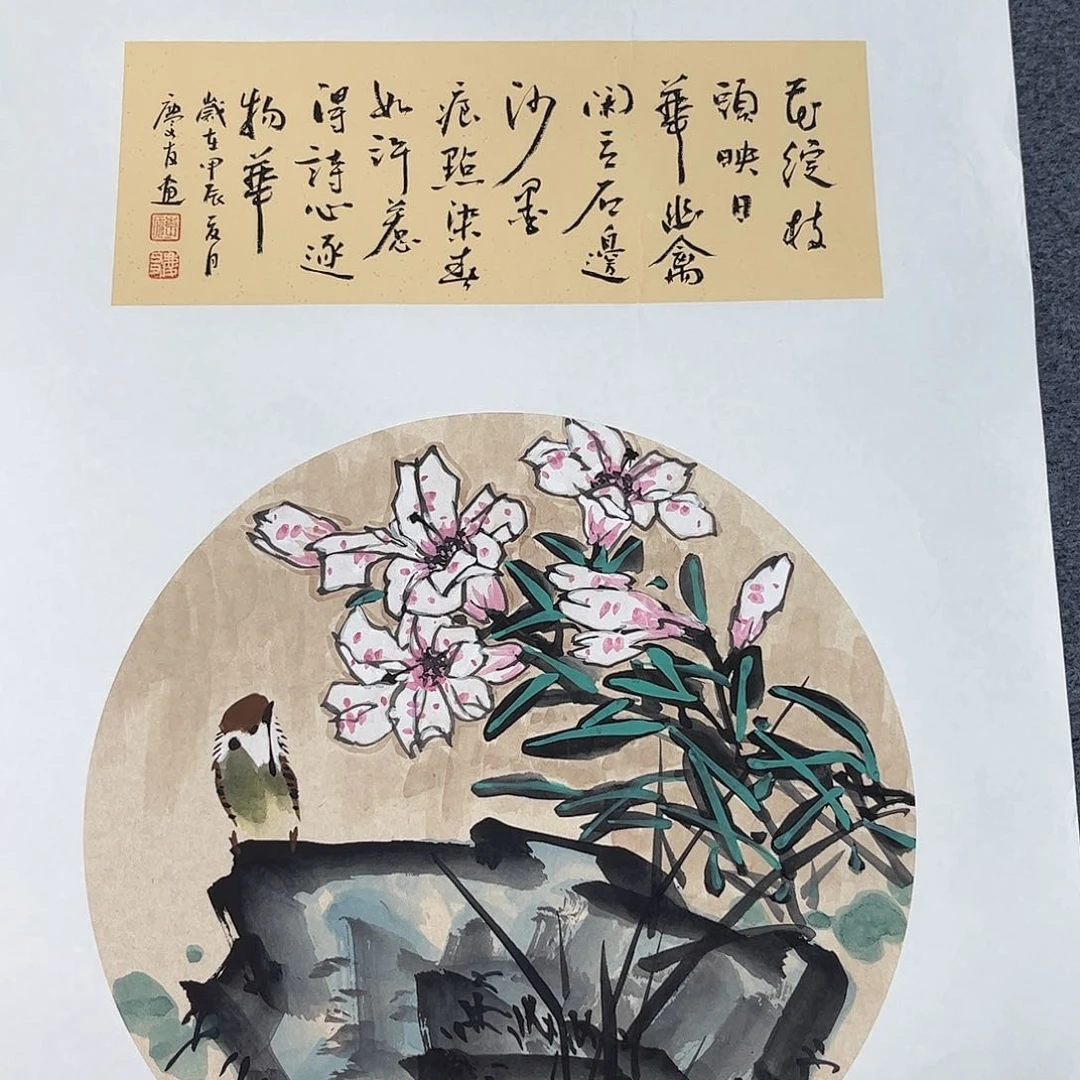 花綻枝
頭映日
華幽禽
閑立石邊
沙墨
痕點染春
如許惹
得詩心逐
物華
歲在甲辰夏月
廖友畫